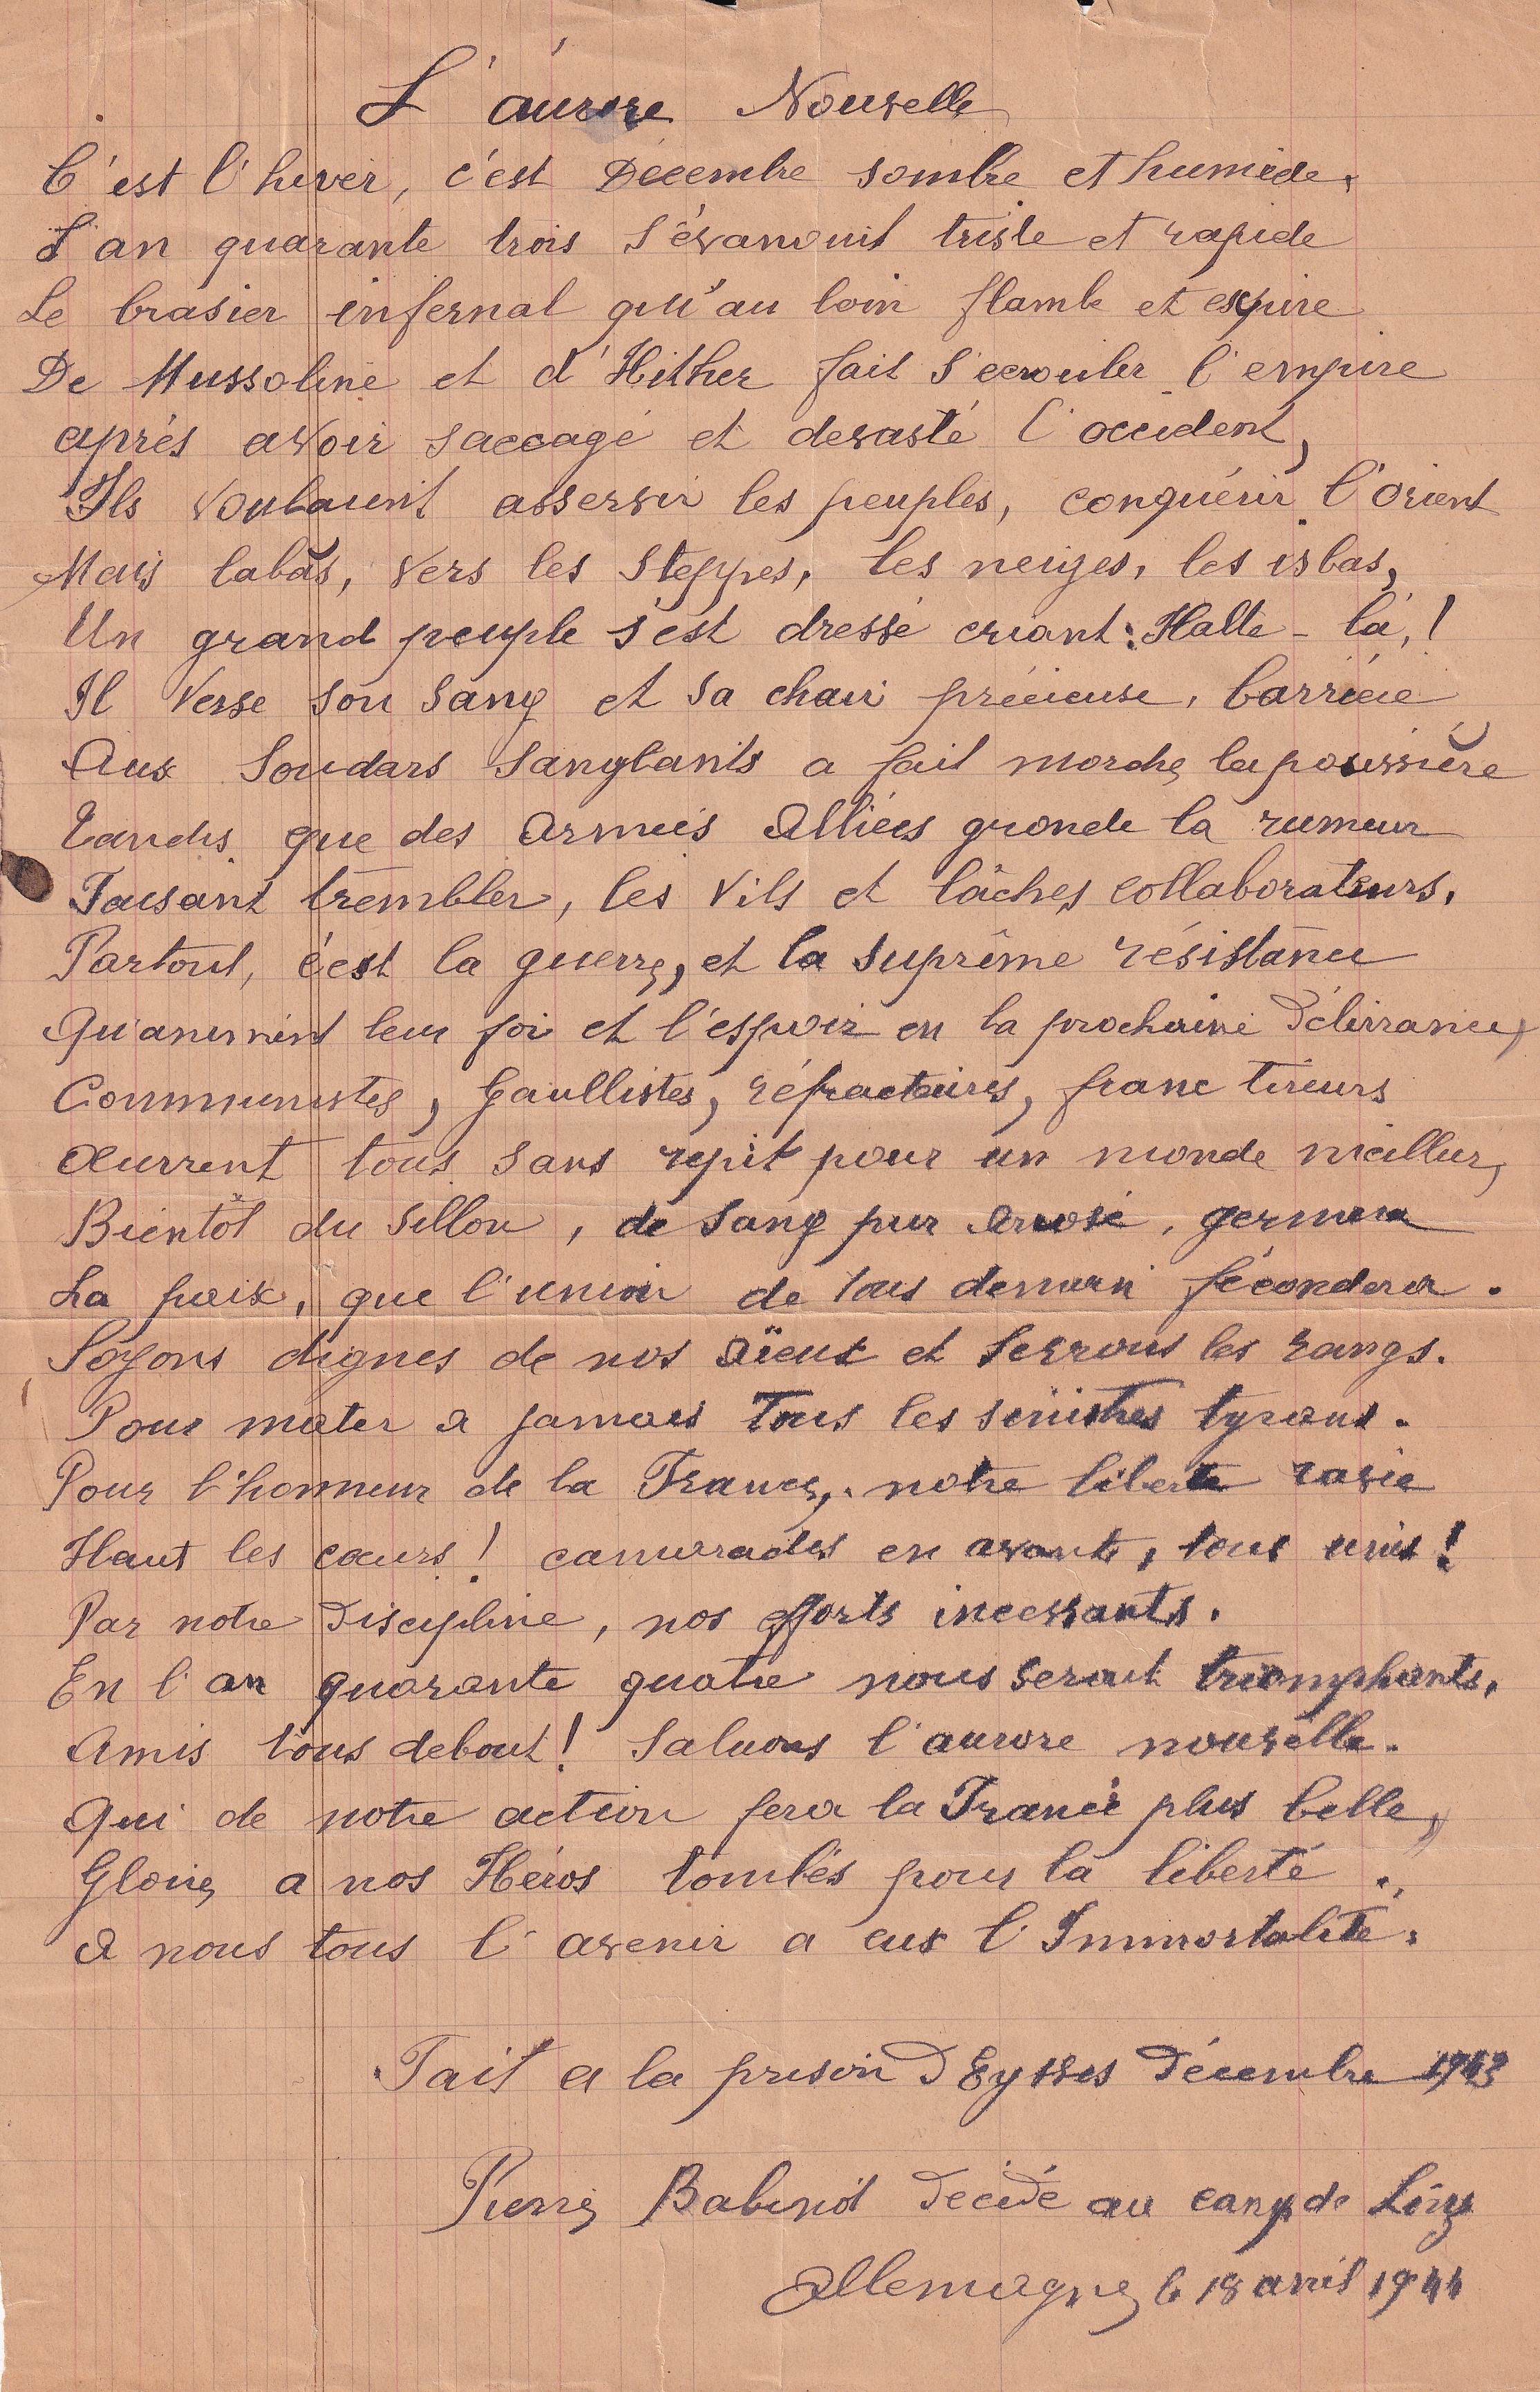 L'aurore Nouvelle
C'est l'hiver, c'est Décembre sombre et humide.
L'an quarante trois s'évanouit triste et rapide
Le brasier infernal qu'au loin flambe et expire
De Mussoline et d'Hither fait s'ecrouler l'empire
après avoir saccagé et devasté l'occident,
Ils voulaient asservir les peuples, conquérir l'orient
Mais labas, vers les steppes, les neiges, les isbas,
Un grand peuple s'est dressé criant: Halte-là,!
Il verse son sang et sa chair précieuse, barrière
Aux soudars sanglants a fait mordre la poussière
Tandis que des armées Alliées gronde la rumeur
Faisant trembler, les vils et lâches collaborateurs.
Partout, c'est la guerre, et la suprême résistance
Qu'animent leur foi et l'espoir en la prochaine délivrance,
Communistes, Gaullistes, réfractaires, franc tireurs
œuvrent tous sans repit pour un monde meilleur,
Bientôt du sillon, de sang pur arrosé, germera
La paix, que l'union de tous demain fécondera.
Soyons dignes de nos aïeux et serrons les rangs.
Pour mater a jamais tous les sinistres tyrans.
Pour l'honneur de la France, notre liberté ravie
Haut les cœurs! camarades en avant, tous unis!
Par notre discipline, nos efforts incessants.
En l'an quarante quatre nous seront triomphants.
Amis tous debout! saluons l'aurore nouvelle.
Qui de notre action fera la France plus belle,
Gloire, a nos Héros tombés pour la liberté.,
a nous tous l'avenir a eux l'Immortalité.
Fait a la prison d'Eysses décembre 1943
Pierre Babinot décidé au camp de Linz
Allemagne le 18 avril 1944